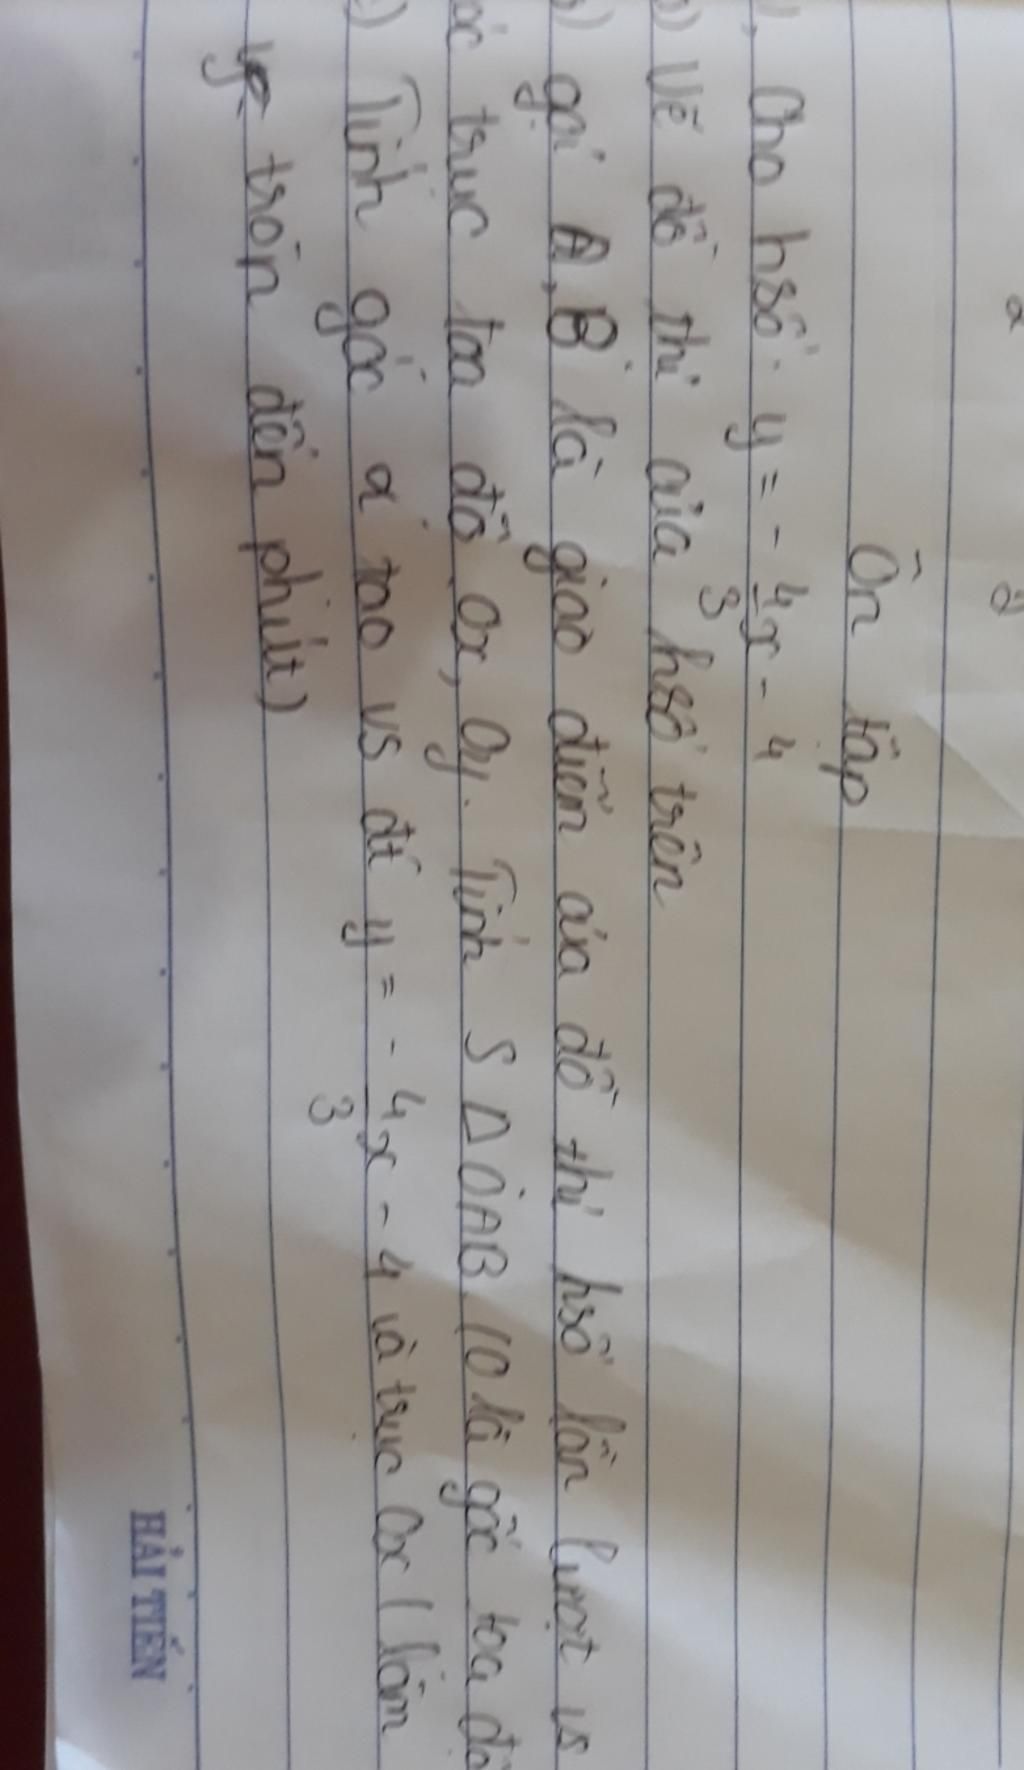 Ôn tập
1, Cho hsố: y = - 4/3 x - 4
a) Vẽ đồ thị của hsố trên
b) gọi A, B là giao điểm của đồ thị hsố lần lượt vs
các trục toạ độ Ox, Oy. Tính S ΔOAB (O là gốc toạ độ
c) Tính góc α tạo vs đt y = - 4/3 x - 4 và trục Ox (làm
tròn đến phút)
HẢI TIẾN